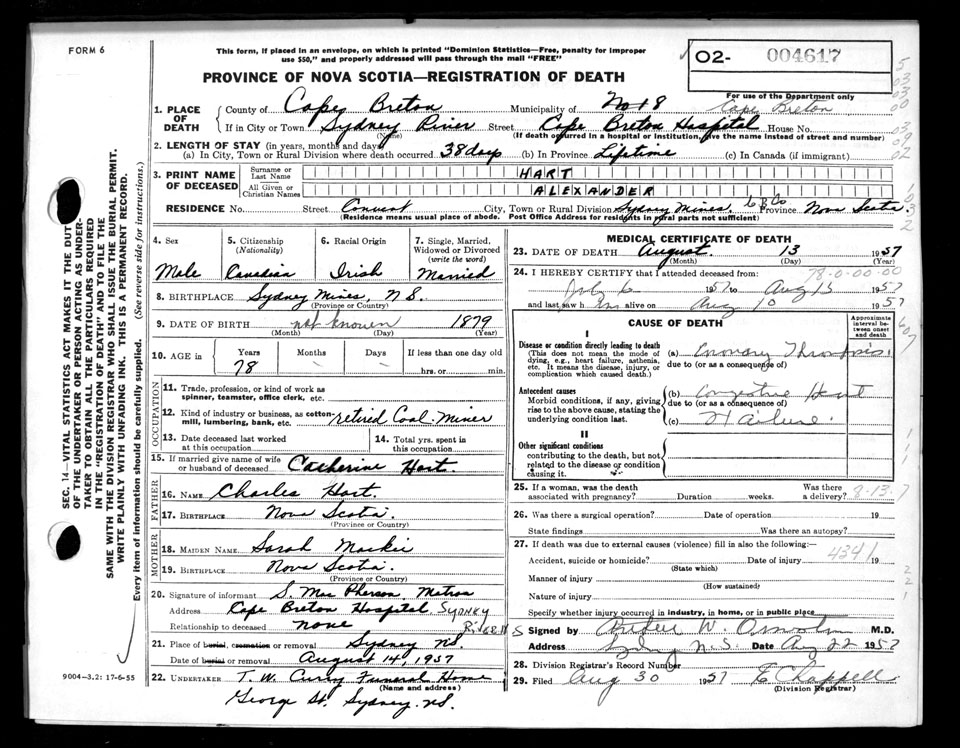 FORM 6
This form, if placed in an envelope, on which is printed "Dominion Statistics—Free, penalty for improper
use $50," and properly addressed will pass through the mail "FREE"
PROVINCE OF NOVA SCOTIA—REGISTRATION OF DEATH
02- 004617
For use of the Department only
Cape Breton
1. PLACE OF DEATH
County of Cape Breton Municipality of No 18
If in City or Town Sydney River Street Cape Breton Hospital House No.
(Name) (If death occurred in a hospital or institution, give the name instead of street and number)
2. LENGTH OF STAY (in years, months and days)
(a) In City, Town or Rural Division where death occurred 38 days (b) In Province Lifetime (c) In Canada (if immigrant)
3. PRINT NAME OF DECEASED
Surname or Last Name HART
All Given or Christian Names ALEXANDER
RESIDENCE No. Street Convent City, Town or Rural Division Sydney Mines, C B Co Province Nova Scotia.
(Residence means usual place of abode. Post Office Address for residents in rural parts not sufficient)
4. Sex
Male
5. Citizenship
(Nationality)
Canadian
6. Racial Origin
Irish
7. Single, Married, Widowed or Divorced
(write the word)
Married
8. BIRTHPLACE Sydney Mines, N S.
(Province or Country)
9. DATE OF BIRTH not known 1879
(Month) (Day) (Year)
10. AGE in
Years Months Days If less than one day old
78 hrs. or min.
OCCUPATION
11. Trade, profession, or kind of work as
spinner, teamster, office clerk, etc.
12. Kind of industry or business, as cotton-
mill, lumbering, bank, etc. retired Coal Miner
13. Date deceased last worked
at this occupation
14. Total yrs. spent in
this occupation
15. If married give name of wife
or husband of deceased Catherine Hart
FATHER
16. NAME Charles Hart.
17. BIRTHPLACE Nova Scotia.
(Province or Country)
MOTHER
18. MAIDEN NAME Sarah Mackie
19. BIRTHPLACE Nova Scotia.
(Province or Country)
20. Signature of informant S. Mac Pherson, Matron
Address Cape Breton Hospital, SYDNEY
Relationship to deceased none RIVER N S
21. Place of burial, cremation or removal Sydney NS.
Date of burial or removal August 14th, 1957
22. UNDERTAKER T. W. Curry Funeral Home
(Name and address)
George St. Sydney. NS.
MEDICAL CERTIFICATE OF DEATH
23. DATE OF DEATH August 13 1957
(Month) (Day) (Year)
78-0-00-00
24. I HEREBY CERTIFY that I attended deceased from:
July 6 1957 to Aug 13 1957
and last saw h im alive on Aug 10 1957
CAUSE OF DEATH
Approximate interval between onset and death
I
Disease or condition directly leading to death
(This does not mean the mode of
dying, e.g., heart failure, asthenia,
etc. It means the disease, injury, or
complication which caused death.)
(a) Coronary Thrombosis.
due to (or as a consequence of)
Antecedent causes
Morbid conditions, if any, giving
rise to the above cause, stating the
underlying condition last.
(b) Congestive Heart
due to (or as a consequence of)
(c) Failure.
II
Other significant conditions
contributing to the death, but not
related to the disease or condition
causing it.
25. If a woman, was the death
associated with pregnancy? Duration weeks. Was there a delivery?
8-13-7
26. Was there a surgical operation? Date of operation 19
State findings Was there an autopsy?
27. If death was due to external causes (violence) fill in also the following:—
4341
Accident, suicide or homicide? Date of injury 19
(State which)
Manner of injury
(How sustained)
Nature of injury
Specify whether injury occurred in industry, in home, or in public place
Signed by M.D.
Address Sydney N.S. Date Aug 22 1957
28. Division Registrar's Record Number
29. Filed Aug 30 1957 E Chappell
(Division Registrar)
SEC. 14—VITAL STATISTICS ACT MAKES IT THE DUTY
OF THE UNDERTAKER OR PERSON ACTING AS UNDER-
TAKER TO OBTAIN ALL THE PARTICULARS REQUIRED
IN THE "REGISTRATION OF DEATH" AND TO FILE THE
SAME WITH THE DIVISION REGISTRAR WHO SHALL ISSUE THE BURIAL PERMIT.
WRITE PLAINLY WITH UNFADING INK. THIS IS A PERMANENT RECORD.
Every item of information should be carefully supplied. (See reverse side for instructions.)
9004-3.2: 17-6-55